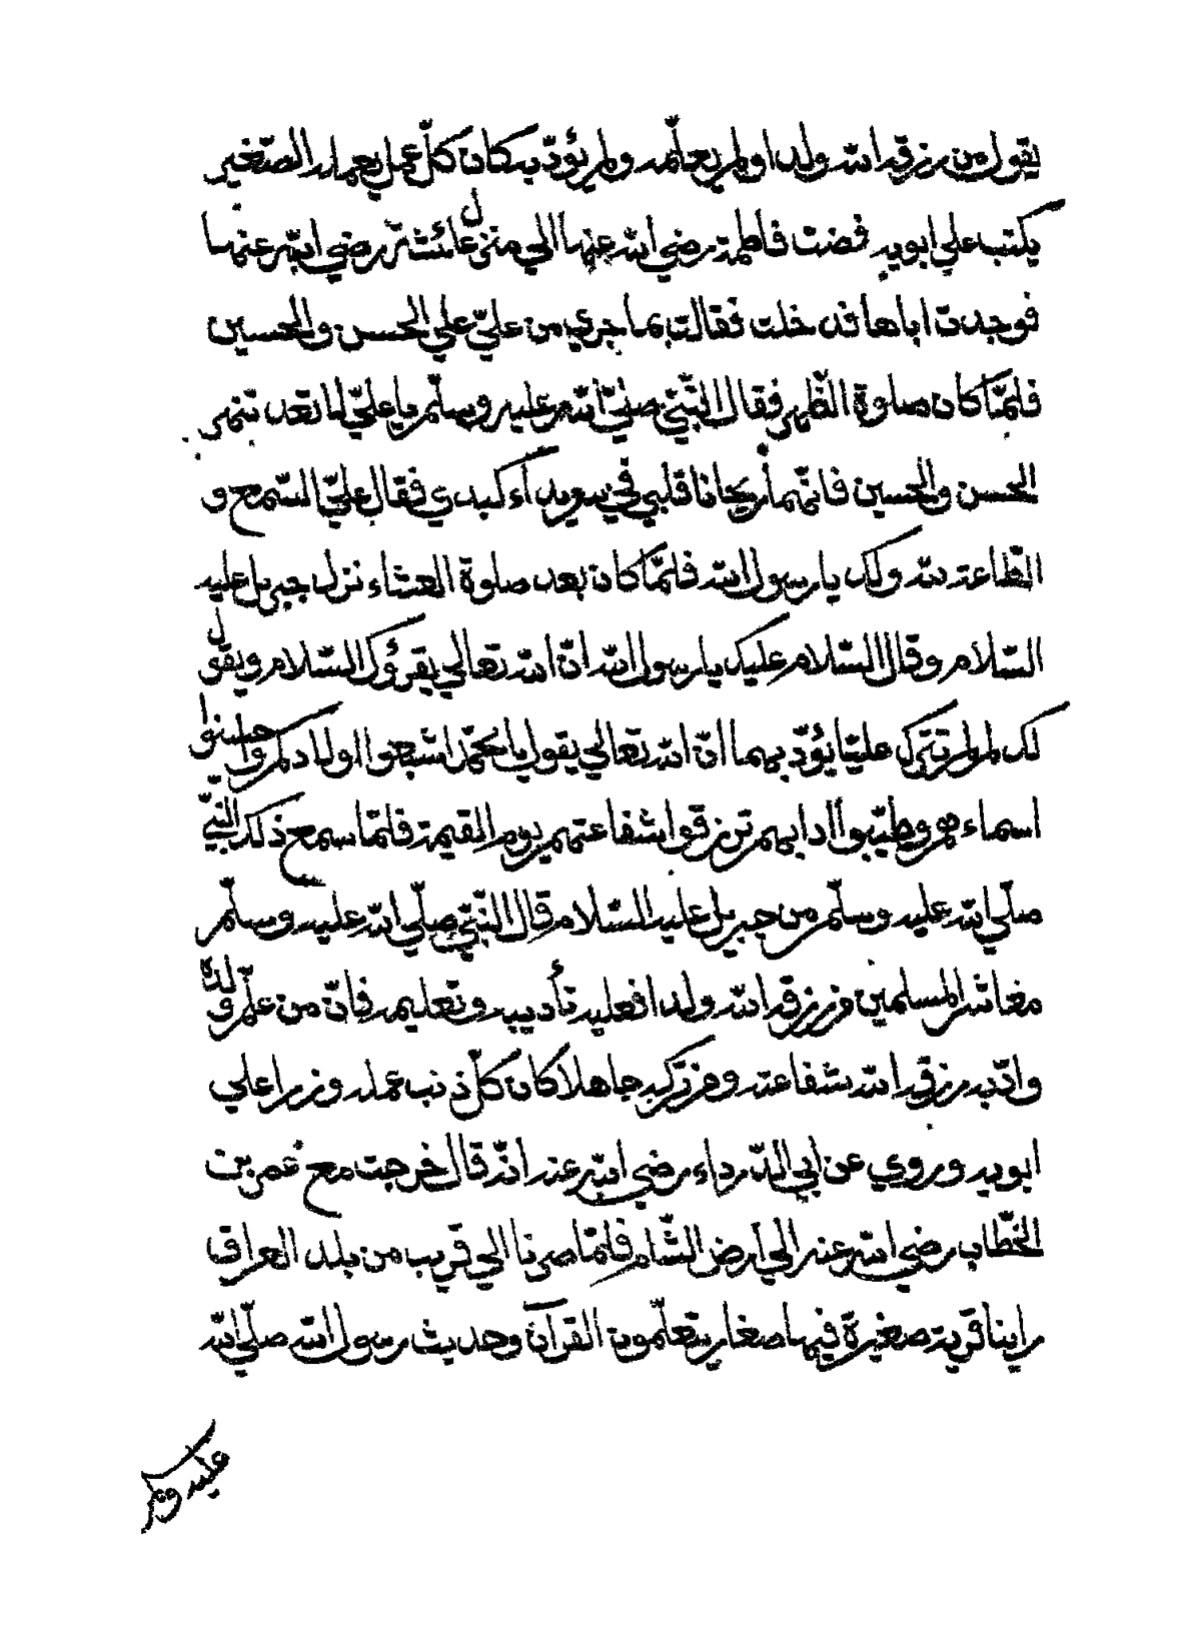 يقول من رزقه الله ولدا ولم يعلّمه ولم يؤدّبه كان كلّ عمل يعمله الصّغير
يكتب على ابويه فمضت فاطمة رضي الله عنها الي منزل عائشة رضي الله عنهما
فوجدت اباها قد خلت فقالت بما جري من عليّ علي الحسن والحسين
فلمّا كان صلوة الظّهر فقال النّبيّ صلّي الله عليه وسلّم يا عليّ لا تعد تنهر
الحسن والحسين فانّهما ريحانا قلبي في كبدي فقال عليّ السّمع و
الطّاعة لله ولك يا رسول الله فلمّا كان بعد صلوة العشاء نزل جبريل عليه
السّلام وقال السّلام عليك يا رسول الله انّ الله تعالي يقرؤك السّلام ويقول
لك لم لم تترك عليّا يؤدّبهما انّ الله تعالي يقول يا محمّد اشبعوا اولادكم واحسنوا
اسماءهم وطيّبوا ادابهم ترزقوا شفاعتهم يوم القيمة فلمّا سمع ذلك النّبيّ
صلّي الله عليه وسلّم من جبريل عليه السّلام قال النّبيّ صلّي الله عليه وسلّم
معاشر المسلمين من رزقه الله ولدا فعليه تأديبه وتعليمه فانّ من علّم ولده
وادّبه رزقه الله شفاعته ومن تركه جاهلا كان كلّ ذنب عمله وزرا علي
ابويه وروي عن ابي الدّرداء رضي الله عنه انّه قال خرجت مع عمر بن
الخطّاب رضي الله عنه الي ارض الشّام فلمّا صرنا الي قريب من بلد العراق
راينا قرية صغيرة فيها صغار يتعلّمون القرآن وحديث رسول الله صلّي الله
عليه وسلم